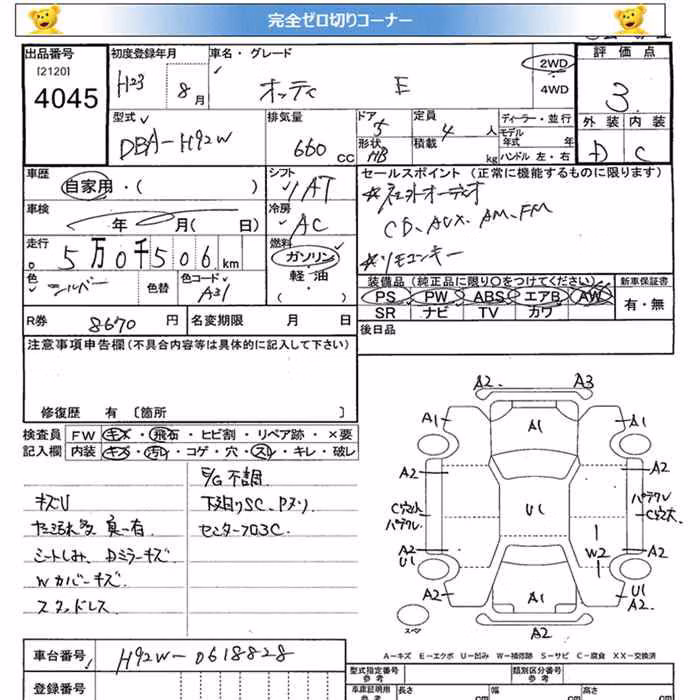 完全ゼロ切りコーナー
出品番号
[2120]
4045
初度登録年月
H23 8月
車名・グレード
オッティ E
2WD
4WD
評価点
3
外装 内装
D C
型式
DBA-H92W
排気量
660 CC
ドア
5
定員
4 人
形状
HB
積載
kg
ディーラー・並行
モデル
年式 年
ハンドル 左・右
車歴
自家用・( )
シフト
AT
車検
年 月( 日)
冷房
AC
走行
5万0千506km
燃料
ガソリン
軽・油
・( )
色
シルバー
色替
色コード
A31
セールスポイント (正常に機能するものに限ります)
*社外オーディオ
CD、AUX、AM、FM
*リモコンキー
装備品 (純正品に限り〇をつけてください)
PS PW ABS エアB AW
SR ナビ TV カワ
新車保証書
有・無
R券 8670 円
名変期限 月 日
後日品
注意事項申告欄(不具合内容等は具体的に記入して下さい)
修復歴 有 〔箇所 〕
検査員
記入欄
FW キズ・飛石・ヒビ割・リペア跡・×要
内装 キズ・汚レ・コゲ・穴・スレ・キレ・破レ
E/G不調
キズU
下廻りSC、Pヌリ
シートしみ、Dミラーキズ
Wカバーキズ
スタッドレス
A2 A3
A1 A1 A1
A2 A2
C穴大
パテワレ
U1
パテワレ
C穴大
A2
U1
W2
A2
A2 A1 U1
A2
スペア
A2
A-キズ E-エクボ U-凹み W-補修跡 S-サビ C-腐食 XX-交換済
車台番号 H92W-0618828
登録番号
型式指定番号
参考
類別区分番号
参考
車庫証明用
参考
長さ cm
幅 cm
高さ cm